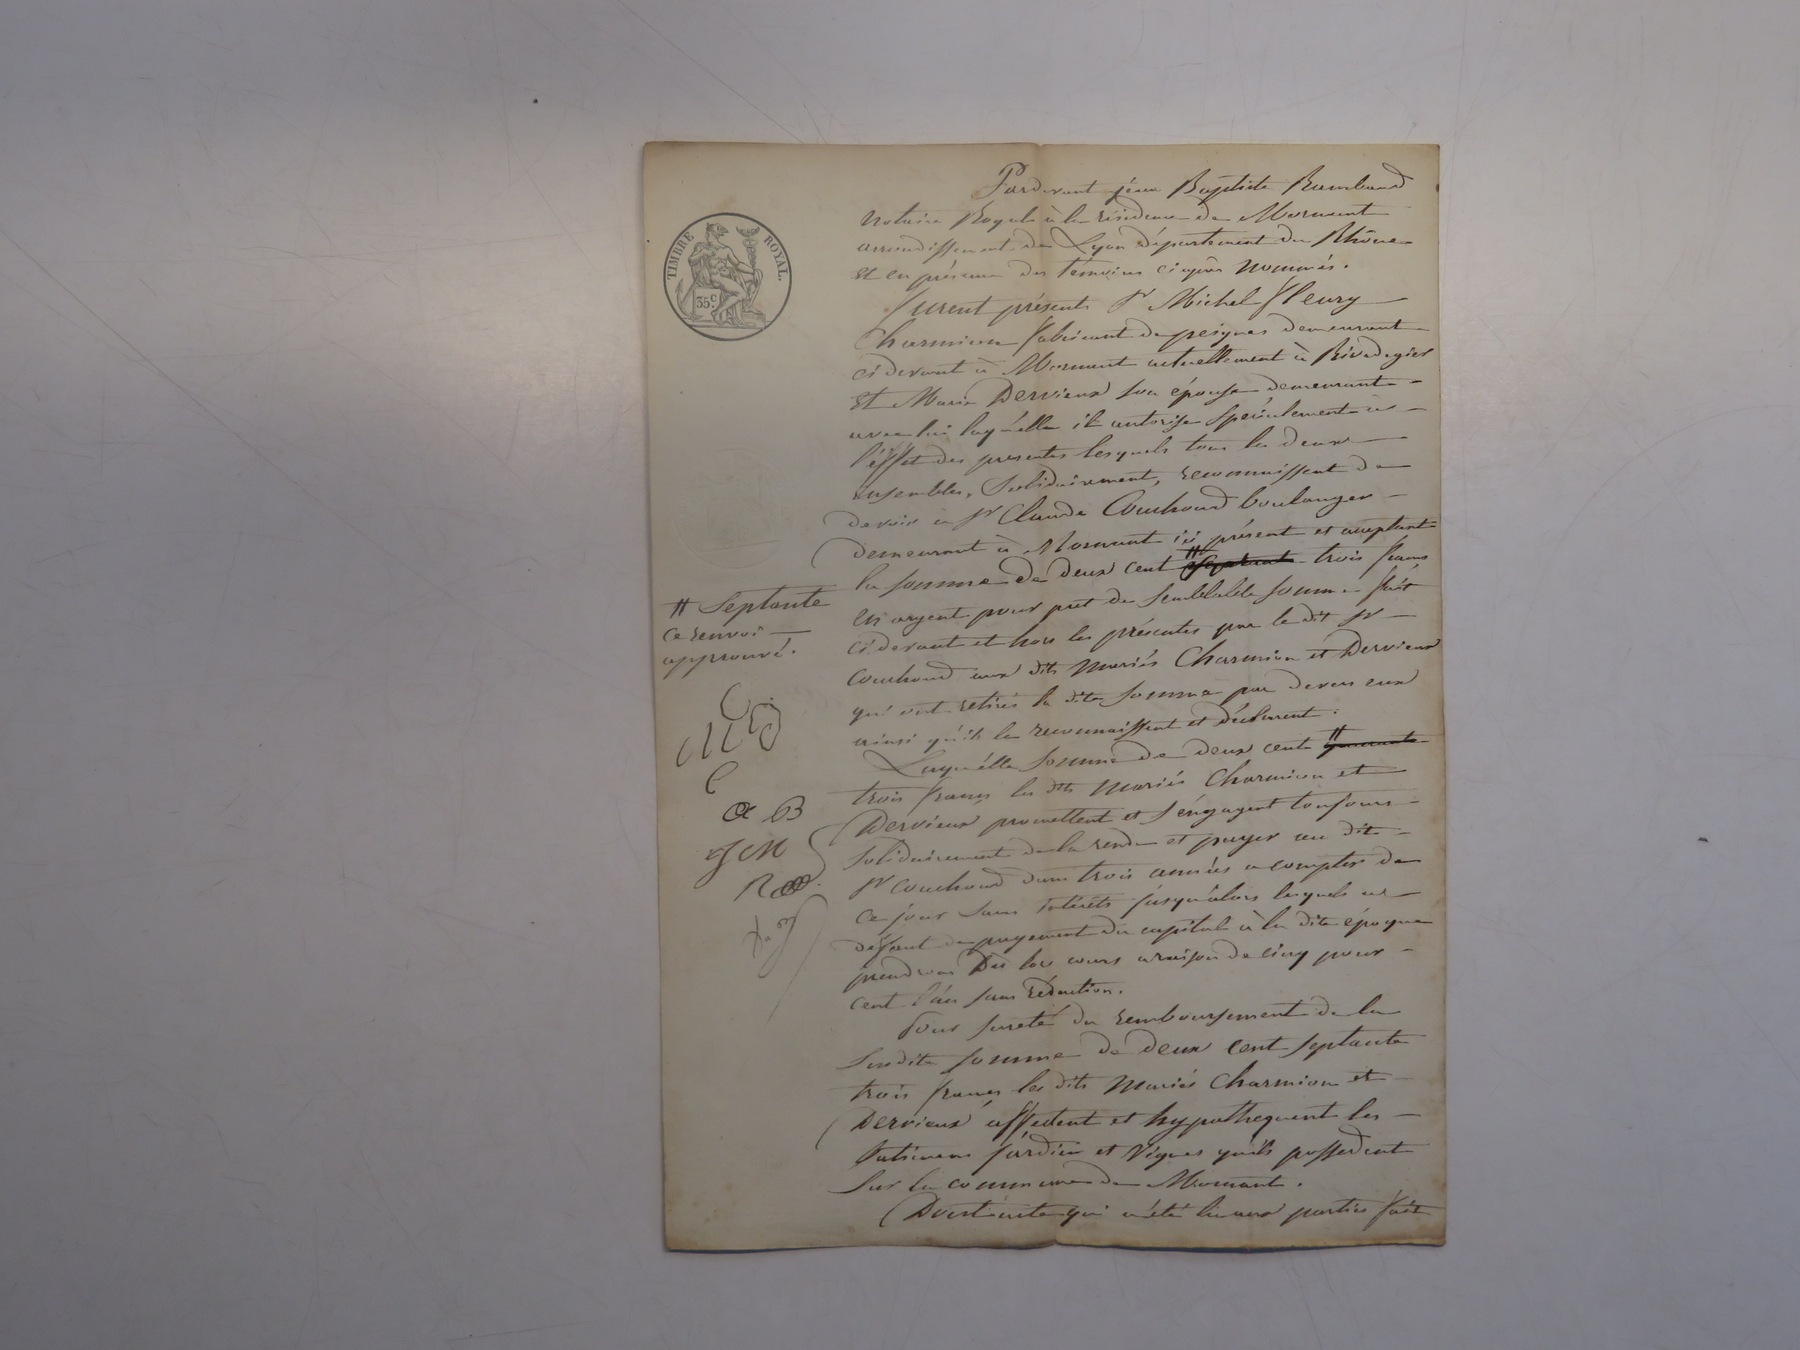 TIMBRE ROYAL.
35 c.
Pardevant jéan Baptiste Rambaud
notaire Royal à la résidence de Mornant
arrondissement de Lyon département du Rhône
et en présence des témoins ci après nommés.
furent présents Sr Michel Fleury
Charmion fabricant de peignes demeurant
ci devant à Mornant actuellement à Rivedegier
et Marie Dervieux son épouse demeurant
avec lui laquélle il autorise spécialement à
l'éffet des presentes lesquels tous les deux
ensembles, Solidairement, reconnaissent de
devoir à Sr Claude Couchoud boulanger
demeurant à Mornant ici présent et acceptant
la somme de deux cent trois francs
en argent pour pret de semblable somme fait
ci devant et hors les présentes par le dit Sr
Couchoud aux dits mariés Charmion et Dervieux
qui ont retirés la dite somme par devers eux
ainsi qu'ils le reconnaissent et déclarent.
Laquélle somme de deux cent quarante
trois francs les dits mariés Charmion et
Dervieux promettent et s'éngagent toujours
solidairement de la rendre et payer au dit
Sr Couchoud dans trois années a compter de
ce jour sans intérêts jusqu'alors lesquels a
défaut de payement du capital à la dite époque
prendron Dès lors cours a raison de cinq pour
cent l'an sans réduction.
Pour sureté du remboursement de la
Susdite somme de deux cent septante
trois francs les dits mariés Charmion et
Dervieux affectent et hypothequent les
batimens jardin et vignes qu'ils possedent
Sur la commune de Mornant.
Dont acte qui a été lu aux parties fait
# Septante
ce renvoi
approuvé.